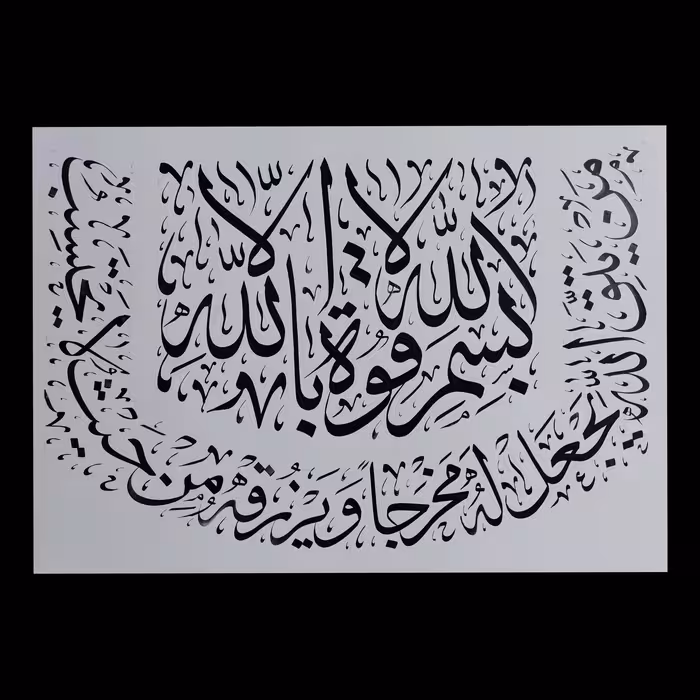 بسم الله لا قوة الا بالله
مَن يتق الله يجعل له مخرجاً ويرزقه من حيث لا يحتسب